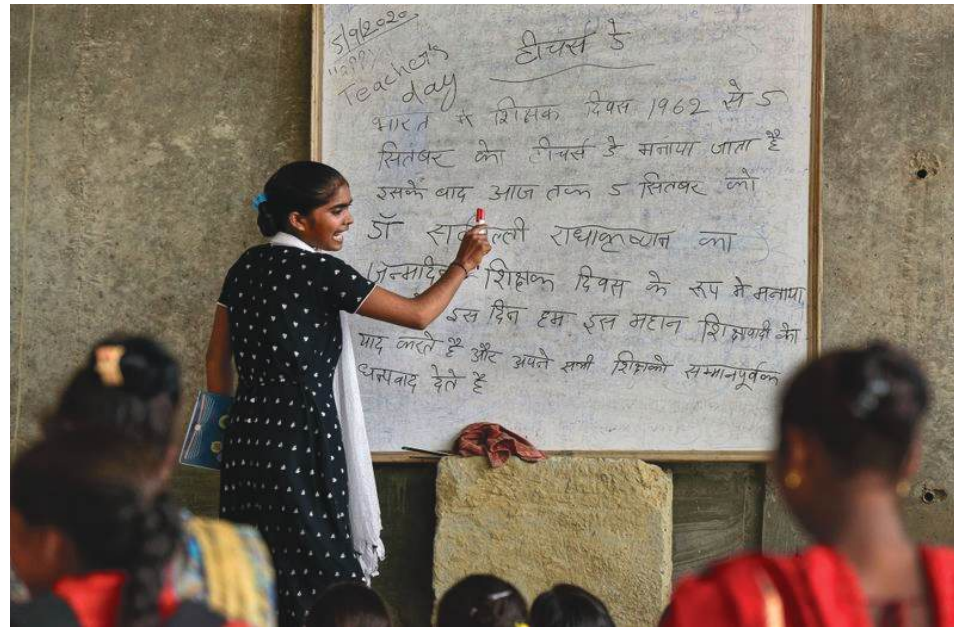 5/9/2020
Happy
Teacher's
day
टीचर्स डे
भारत में शिक्षक दिवस 1962 से 5
सितंबर को टीचर्स डे मनाया जाता है
इसके बाद आज तक 5 सितंबर को
डॉ राधाकृष्णन का
शिक्षक दिवस के रूप मे मनाया
इस दिन हम इस महान को
याद करते है और अपने सभी शिक्षको सम्मानपूर्वक
धन्यवाद देते है